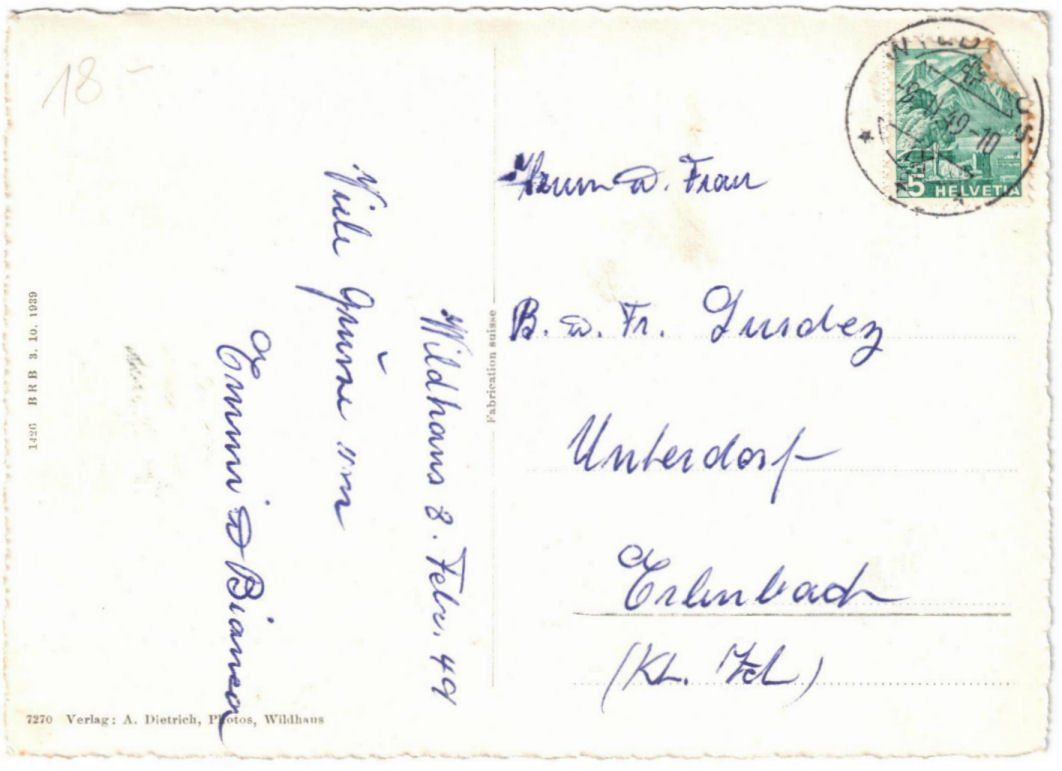 18 –
Wildhaus 8. Febr. 49
Viele Grüsse von
Emmi & Bianca
Fabrication suisse
1496 BRB 3. 10. 1939
7270 Verlag: A. Dietrich, Photos, Wildhaus
5 HELVETIA
Herrn & Frau
B. & Fr.
Unterdorf
Erlenbach
(Kt. Zch)